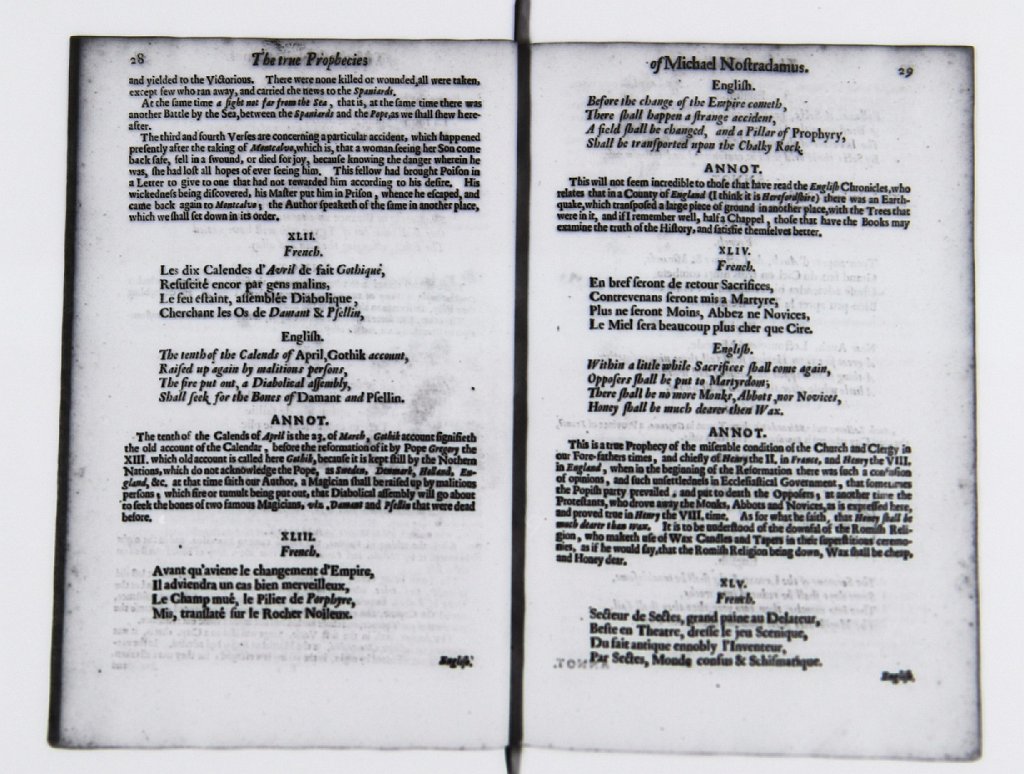 28 The true Prophecies
and yielded to the Victorious. There were none killed or wounded, all were taken,
except few who ran away, and carried the news to the Spaniards.
At the same time a fight not far from the Sea, that is, at the same time there was
another Battle by the Sea, between the Spaniards and the Pope, as we shall shew here-
after.
The third and fourth Verses are concerning a particular accident, which happened
presently after the taking of Montcalvo, which is, that a woman seeing her Son come
back safe, fell in a swound, or died for joy, because knowing the danger wherein he
was, she had lost all hopes of ever seeing him. This fellow had brought Poison in
a Letter to give to one that had not rewarded him according to his desire, His
wickedness being discovered, his Master put him in Prison, whence he escaped, and
came back again to Montcalvo; the Author speaketh of the same in another place,
which we shall set down in its order.
XLII.
French.
Les dix Calendes d'Avril de fait Gothique,
Resuscité encor par gens malins,
Le feu estaint, assemblée Diabolique,
Cherchant les Os de Damant & Psellin,
English.
The tenth of the Calends of April, Gothik account,
Raised up again by malitious persons,
The fire put out, a Diabolical assembly,
Shall seek for the Bones of Damant and Psellin.
ANNOT.
The tenth of the Calends of April is the 23, of March, Gothik account signifieth
the old account of the Calendar, before the reformation of it by Pope Gregory the
XIII. which old account is called here Gothik, because it is kept still by the Northern
Nations, which do not acknowledge the Pope, as Sweden, Denmark, Holland, En-
gland, &c. at that time saith our Author, a Magician shall be raised up by malitious
persons, which fire or tumult being put out, that Diabolical assembly will go about
to seek the bones of two famous Magicians, viz. Damant and Psellin that were dead
before.
XLIII.
French.
Avant qu'aviene le changement d'Empire,
Il adviendra un cas bien merveilleux,
Le Champ mué, le Pilier de Porphyre,
Mis, translaté sur le Rocher Noileux.
English.
of Michael Nostradamus. 29
English.
Before the change of the Empire cometh,
There shall happen a strange accident,
A field shall be changed, and a Pillar of Prophyry,
Shall be transported upon the Chalky Rock.
ANNOT.
This will not seem incredible to those that have read the English Chronicles, who
relates that in a County of England (I think it is Herefordshire) there was an Earth-
quake, which transposed a large piece of ground in another place, with the Trees that
were in it, and if I remember well, half a Chappel, those that have the Books may
examine the truth of the History, and satisfie themselves better.
XLIV.
French.
En bref seront de retour Sacrifices,
Contrevenans seront mis a Martyre,
Plus ne seront Moins, Abbez ne Novices,
Le Miel sera beaucoup plus cher que Cire.
English.
Within a little while Sacrifices shall come again,
Opposers shall be put to Martyrdom;
There shall be no more Monks, Abbots, nor Novices,
Honey shall be much dearer then Wax.
ANNOT.
This is a true Prophecy of the miserable condition of the Church and Clergy in
our Fore-fathers times, and chiefly of Henry the II, in France, and Henry the VIII.
in England, when in the beginning of the Reformation there was such a confusion
of opinions, and such unsettledness in Ecclesiastical Government, that sometimes
the Popish party prevailed, and put to death the Opposers, at another time the
Protestants, who drove away the Monks, Abbots and Novices, as is expressed here,
and proved true in Henry the VIII, time. As for what he saith, that Honey shall be
much dearer than wax. It is to be understood of the downfal of the Romish Reli-
gion, who maketh use of Wax Candles and Tapers in their superstitious ceremo-
nies, as if he would say, that the Romish Religion being down, Wax shall be cheap,
and Honey dear.
XLV.
French.
Secteur de Sectes, grand paine au Delateur,
Beste en Theatre, dresse le jeu Scenique,
Du fait antique ennobly l'Inventeur,
Par Sectes, Monde confus & Schismatique.
English.